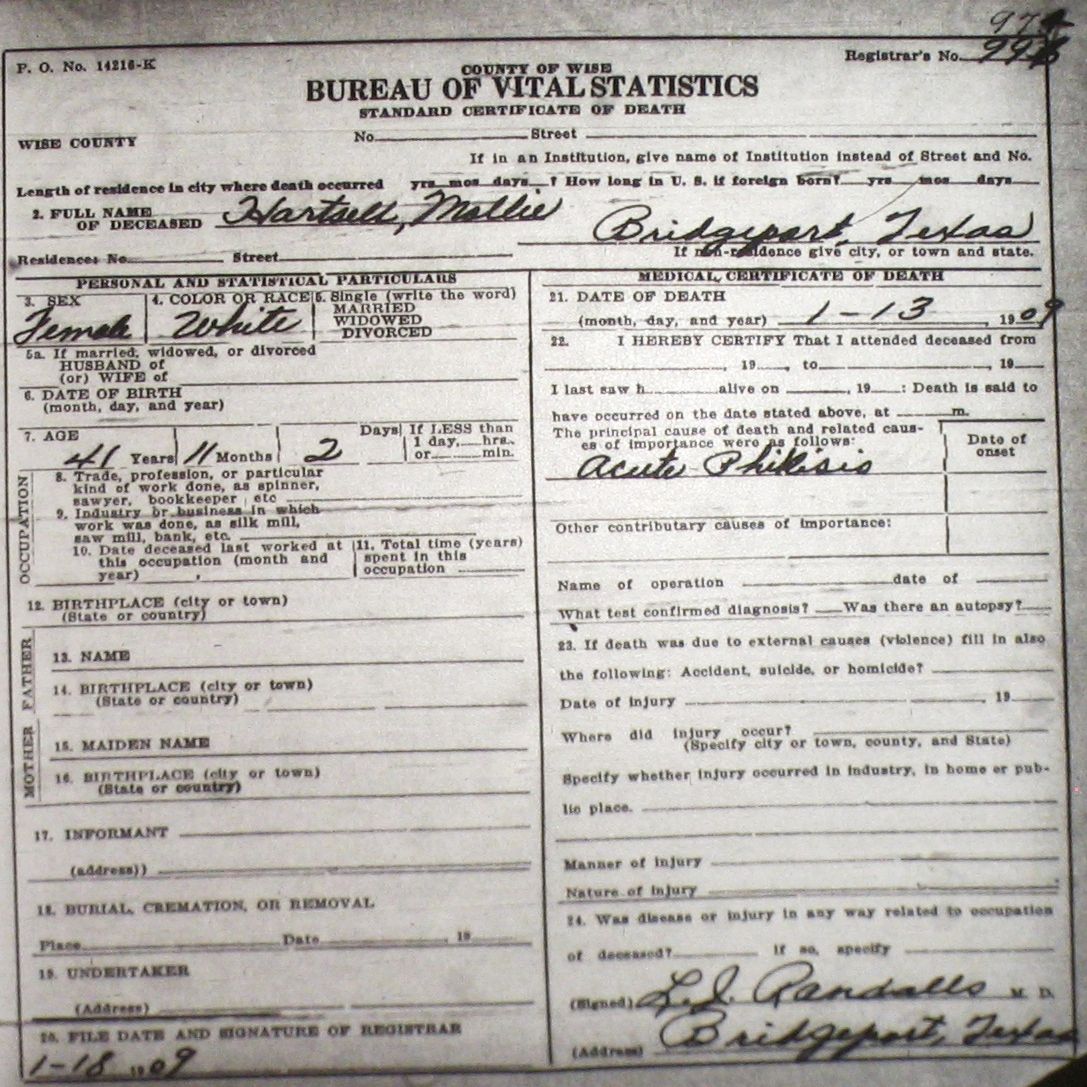 974
P. O. No. 14216-K
COUNTY OF WISE
Registrar's No.
BUREAU OF VITAL STATISTICS
STANDARD CERTIFICATE OF DEATH
WISE COUNTY
No. Street
If in an Institution, give name of Institution instead of Street and No.
Length of residence in city where death occurred yrs mos days ? How long in U. S. if foreign born? yrs mos days
2. FULL NAME OF DECEASED Hartsell, Mollie
Bridgeport, Texas
Residence: No. Street
If non-residence give city, or town and state.
PERSONAL AND STATISTICAL PARTICULARS
3. SEX Female
4. COLOR OR RACE White
5. Single (write the word)
MARRIED
WIDOWED
DIVORCED
5a. If married, widowed, or divorced
HUSBAND of
(or) WIFE of
6. DATE OF BIRTH
(month, day, and year)
7. AGE
41 Years 11 Months 2 Days
If LESS than
1 day, hrs.
or min.
OCCUPATION
8. Trade, profession, or particular
kind of work done, as spinner,
sawyer, bookkeeper, etc
9. Industry or business in which
work was done, as silk mill,
saw mill, bank, etc.
10. Date deceased last worked at
this occupation (month and
year) ,
11. Total time (years)
spent in this
occupation
12. BIRTHPLACE (city or town)
(State or country)
FATHER
13. NAME
14. BIRTHPLACE (city or town)
(State or country)
MOTHER
15. MAIDEN NAME
16. BIRTHPLACE (city or town)
(State or country)
17. INFORMANT
(address))
18. BURIAL, CREMATION, OR REMOVAL
Place Date , 19
19. UNDERTAKER
(Address)
20. FILE DATE AND SIGNATURE OF REGISTRAR
1-18 1909
MEDICAL CERTIFICATE OF DEATH
21. DATE OF DEATH
(month, day, and year) 1-13, 1909
22. I HEREBY CERTIFY That I attended deceased from
, 19 , to , 19
I last saw h alive on , 19 : Death is said to
have occurred on the date stated above, at m.
The principal cause of death and related caus-
es of importance were as follows:
Date of
onset
Acute Phthisis
Other contributary causes of importance:
Name of operation date of
What test confirmed diagnosis? Was there an autopsy?
23. If death was due to external causes (violence) fill in also
the following: Accident, suicide, or homicide?
Date of injury , 19
Where did injury occur?
(Specify city or town, county, and State)
Specify whether injury occurred in industry, in home or pub-
lic place.
Manner of injury
Nature of injury
24. Was disease or injury in any way related to occupation
of deceased? If so, specify
(Signed) L. J. Randalls M. D.
(Address) Bridgeport, Texas